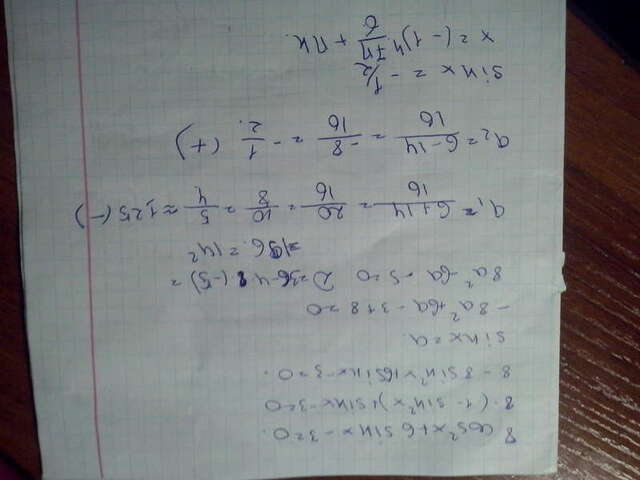 8 cos²x + 6 sinx - 3 = 0.
8·(1 - sin²x) + sinx - 3 = 0
8 - 8 sin²x + 6 sinx - 3 = 0.
sinx = a.
-8a² + 6a - 3 + 8 = 0
8a² - 6a - 5 = 0 D = 36 - 4·8·(-5) =
= 196 = 14²
a₁ = (6+14)/16 = 20/16 = 10/8 = 5/4 ≈ 1,25 (-)
a₂ = (6-14)/16 = -8/16 = -1/2. (+)
sin x = -1/2
x = (-1)ⁿ 7π/6 + πn.